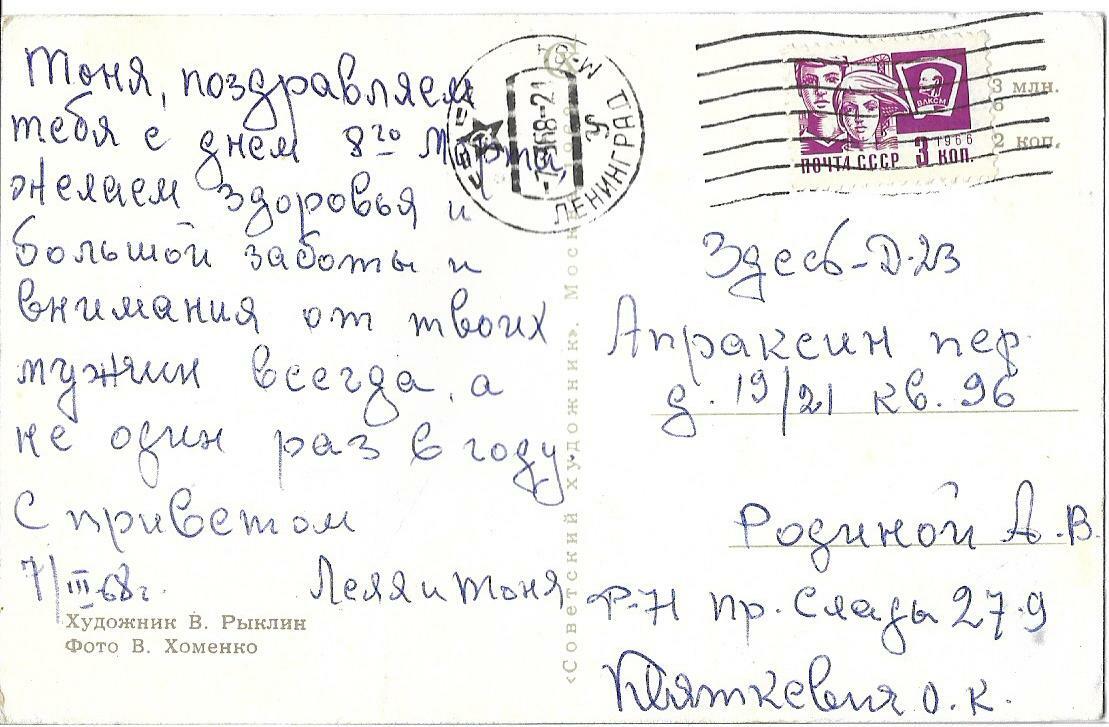 Тоня, поздравляем
тебя с днем 8го Марта,
желаем здоровья и
большой заботы и
внимания от твоих
мужчин всегда, а
не один раз в году.
С приветом
7/III 68г.
Леля и Тоня
Художник В. Рыклин
Фото В. Хоменко
ЛЕНИНГРАД
3 млн.
6
2 коп.
ВЛКСМ
1966
ПОЧТА СССР 3 КОП.
«Советский художник». Москва
Здесь-Д-23
Апраксин пер.
д. 19/21 кв. 96
Родиной А.В.
Р-Н пр. Славы 27-9
О.К.